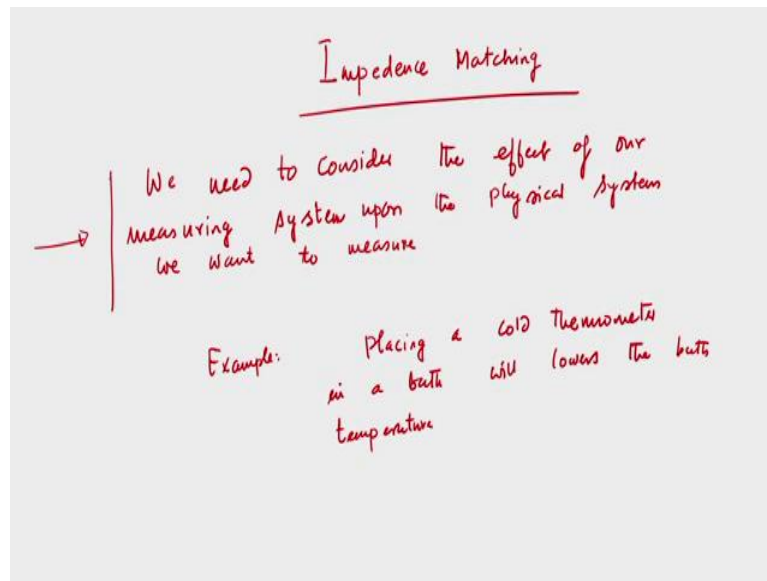 Impedence Matching
We need to consider the effect of our
measuring system upon the physical system
we want to measure
Example: Placing a cold thermometer
in a bath will lowers the bath
temperature